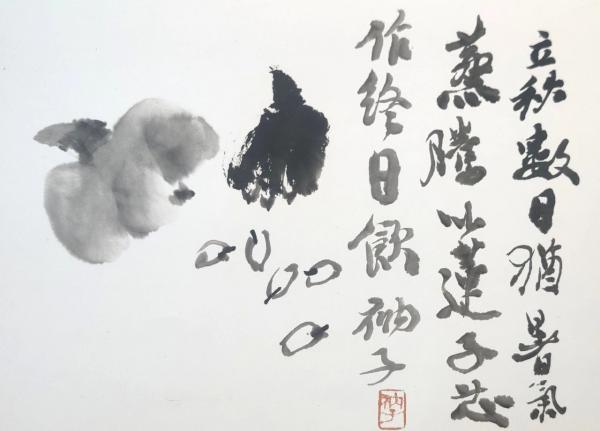 立秋數日猶暑氣
蒸騰以蓮子芯
作終日飲衲子